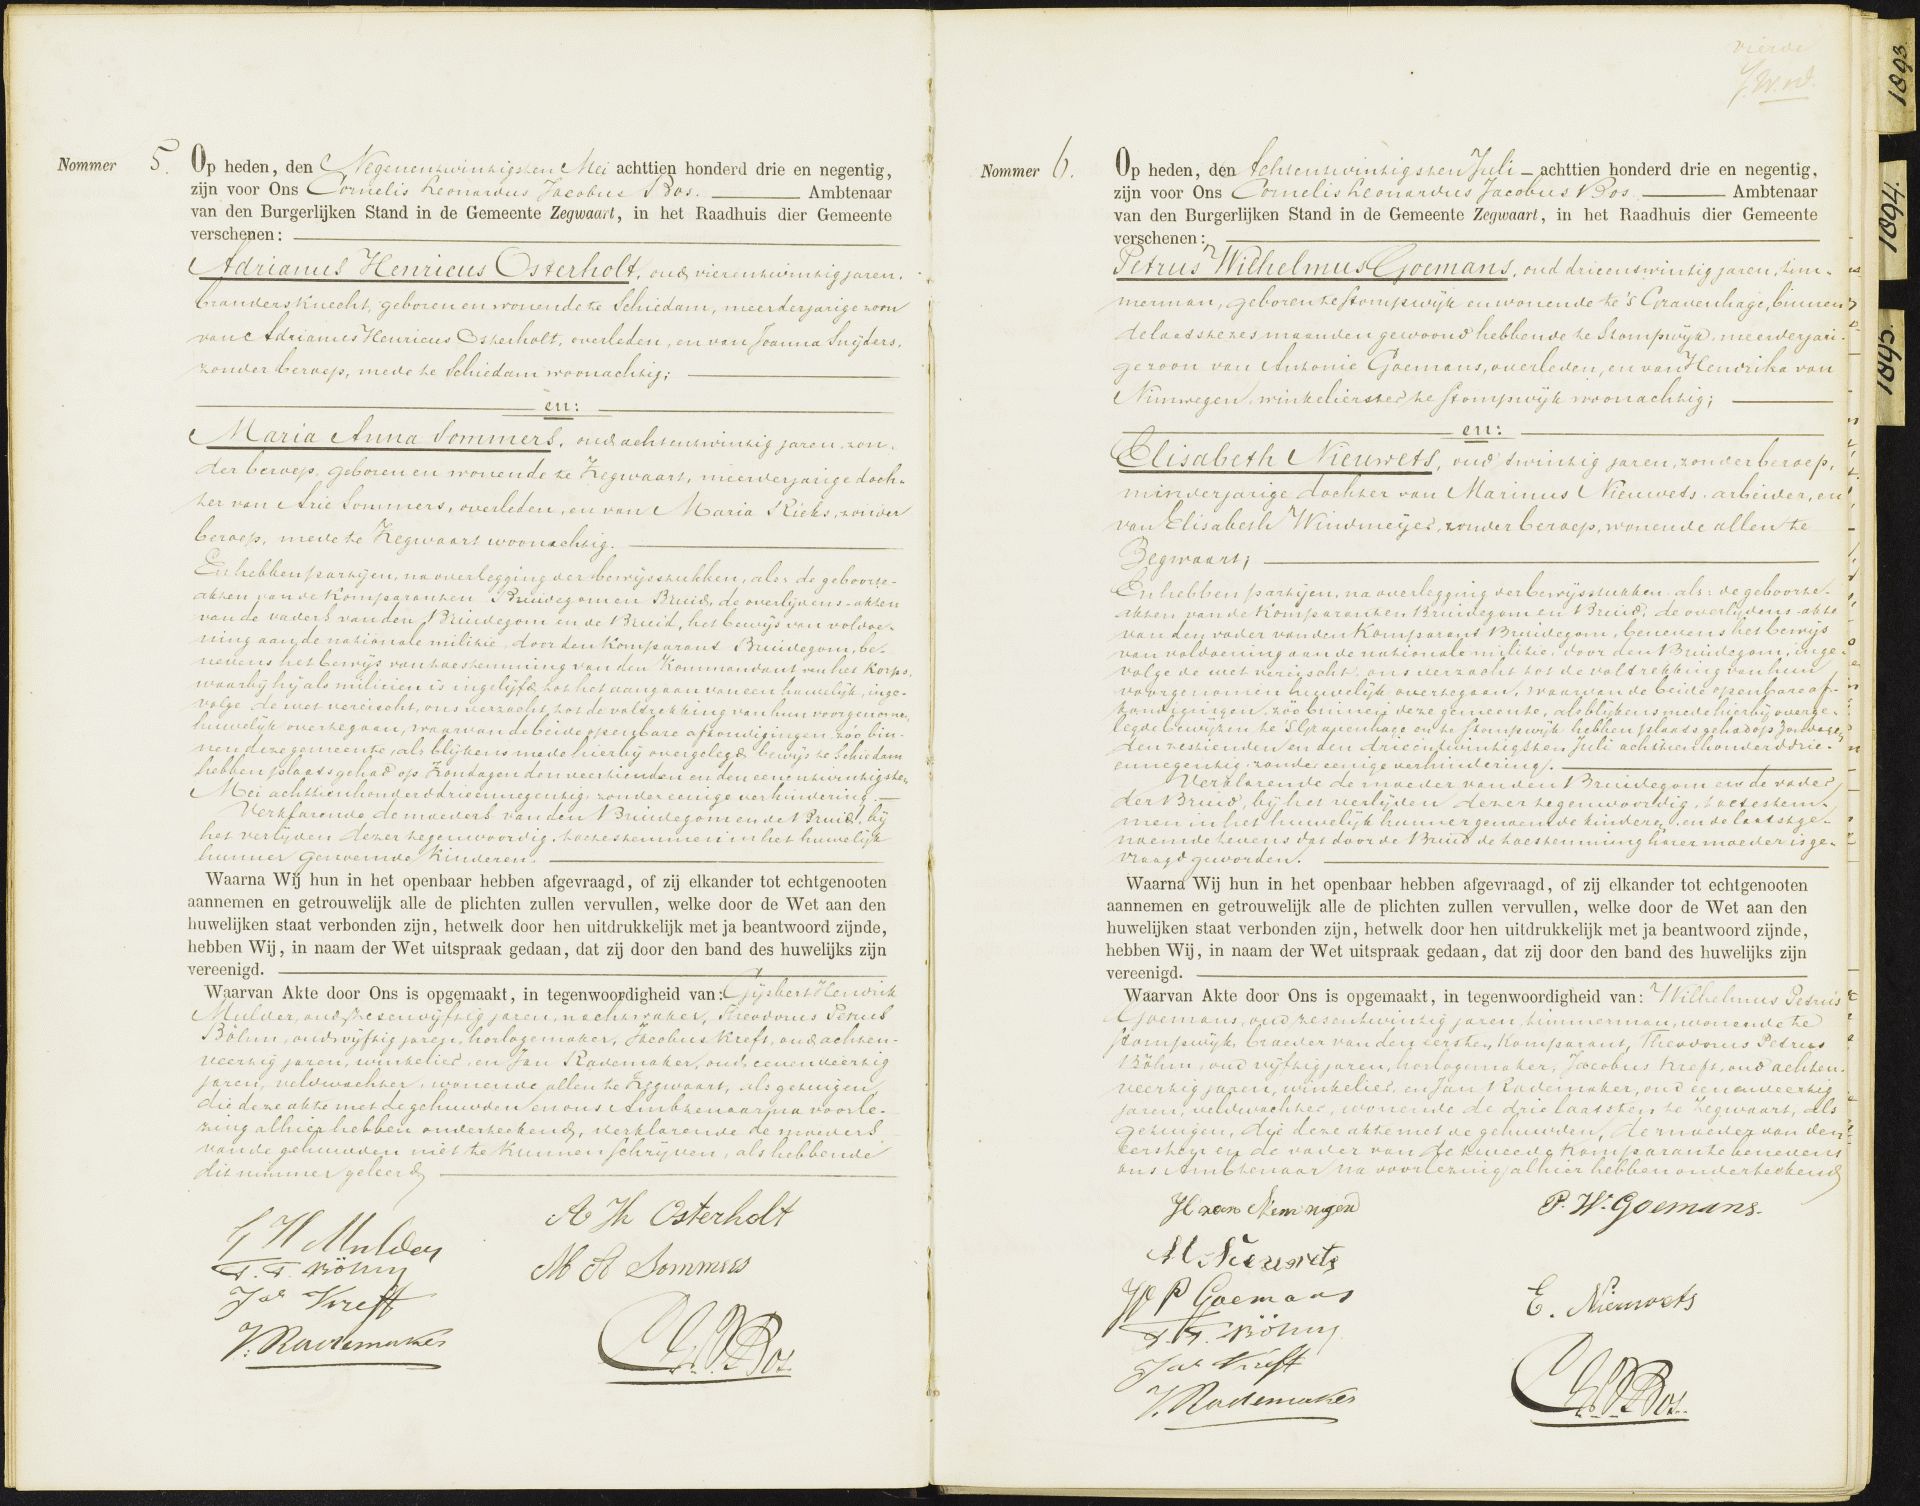 Nommer 5. Op heden, den Negenentwintigsten Mei achttien honderd drie en negentig,
zijn voor Ons Cornelis Leonardus Jacobus Bos. Ambtenaar
van den Burgerlijken Stand in de Gemeente Zegwaart, in het Raadhuis dier Gemeente
verschenen:
Adrianus Henricus Osterholt, oud vierentwintig jaren,
brandersknecht, geboren en wonende te Schiedam, meerderjarige zoon
van Adrianus Henricus Osterholt, overleden, en van Joanna Snijders,
zonder beroep, mede te Schiedam woonachtig;
en:
Maria Anna Sommers, oud achtentwintig jaren, zon-
der beroep, geboren en wonende te Zegwaart, meerderjarige doch-
ter van Arie Sommers, overleden, en van Maria Rieks, zonder
beroep, mede te Zegwaart woonachtig.
En hebben partijen, na overlegging der bewijsstukken, als: de geboorte-
akten van de Komparanten Bruidegom en Bruid, de overlijdens-akten
van de vaders van den Bruidegom en de Bruid, het bewijs van voldoe-
ning aan de nationale militie, door den Komparant Bruidegom, be-
nevens het bewijs van toestemming van den Kommandant van het Korps,
waarbij hij als milicien is ingelijfd tot het aangaan van een huwelijk, inge-
volge de wet vereischt, ons verzocht, tot de voltrekking van hun voorgenomen
huwelijk overtegaan, waarvan de beide openbare afkondigingen, zóó bin-
nen deze gemeente, als blijkens mede hierbij overgelegd bewijs te Schiedam
hebben plaats gehad op Zondagen den veertienden en den eenentwintigsten
Mei achttienhonderd drieennegentig, zonder eenige verhindering.
Verklarende de moeders van den Bruidegom en de Bruid, bij
het verlijden dezer tegenwoordig, toetestemmen in het huwelijk
hunner genoemde Kinderen.
Waarna Wij hun in het openbaar hebben afgevraagd, of zij elkander tot echtgenooten
aannemen en getrouwelijk alle de plichten zullen vervullen, welke door de Wet aan den
huwelijken staat verbonden zijn, hetwelk door hen uitdrukkelijk met ja beantwoord zijnde,
hebben Wij, in naam der Wet uitspraak gedaan, dat zij door den band des huwelijks zijn
vereenigd.
Waarvan Akte door Ons is opgemaakt, in tegenwoordigheid van: Gijsbert Hendrik
Mulder, oud zesenvijftig jaren, nachtwaker, Theodorus Petrus
Böhm, oud vijftig jaren, horlogemaker, Jacobus Kreft, oud achten-
veertig jaren, winkelier, en Jan Rademaker, oud eenenveertig
jaren, veldwachter, wonende allen te Zegwaart, als getuigen,
die deze akte met de gehuwden en ons Ambtenaar, na voorle-
zing alhier hebben onderteekend, verklarende de moeders
van de gehuwden niet te Kunnen schrijven, als hebbende
dit nimmer geleerd
A H Osterholt
G H Mulder
T. P. Böhm
M A Sommers
Jac Kreft
J. Rademaker
C L J Bos
vierde
Nommer 6. Op heden, den Achtentwintigsten Juli achttien honderd drie en negentig,
zijn voor Ons Cornelis Leonardus Jacobus Bos. Ambtenaar
van den Burgerlijken Stand in de Gemeente Zegwaart, in het Raadhuis dier Gemeente
verschenen:
Petrus Wilhelmus Goemans, oud drieentwintig jaren, tim-
merman, geboren te Stompwijk en wonende te 's Gravenhage, binnen
de laatste zes maanden gewoond hebbende te Stompwijk, meerderjari-
ge zoon van Antonie Goemans, overleden, en van Hendrika van
Nimwegen, winkelierster te Stompwijk woonachtig;
en:
Elisabeth Nieuwets, oud twintig jaren, zonder beroep,
minderjarige dochter van Marinus Nieuwets, arbeider, en
van Elisabeth Windmeijer, zonder beroep, wonende allen te
Zegwaart;
En hebben partijen, na overlegging der bewijsstukken, als: de geboorte-
akten van de Komparanten Bruidegom en Bruid, de overlijdens-akte
van den vader van den Komparant Bruidegom, benevens het bewijs
van voldoening aan de nationale militie, door den Bruidegom, inge-
volge de wet vereischt, ons verzocht tot de voltrekking van hun
voorgenomen huwelijk overtegaan, waarvan de beide openbare af-
kondigingen, zóó binnen deze gemeente, als blijkens mede hierbij overge-
legde bewijzen te 's Gravenhage en te Stompwijk hebben plaats gehad op Zondagen
den zestienden en den drieentwintigsten Juli achttienhonderd drie-
ennegentig, zonder eenige verhindering.
Verklarende de moeder van den Bruidegom en de vader
der Bruid, bij het verlijden dezer tegenwoordig, toetestem-
men in het huwelijk hunner genoemde kinderen, en de laatstge-
noemde tevens dat door de Bruid de toestemming harer moeder is ge-
vraagd geworden.
Waarna Wij hun in het openbaar hebben afgevraagd, of zij elkander tot echtgenooten
aannemen en getrouwelijk alle de plichten zullen vervullen, welke door de Wet aan den
huwelijken staat verbonden zijn, hetwelk door hen uitdrukkelijk met ja beantwoord zijnde,
hebben Wij, in naam der Wet uitspraak gedaan, dat zij door den band des huwelijks zijn
vereenigd.
Waarvan Akte door Ons is opgemaakt, in tegenwoordigheid van: Wilhelmus Petrus
Goemans, oud zesentwintig jaren, timmerman, wonende te
Stompwijk, broeder van den eersten Komparant, Theodorus Petrus
Böhm, oud vijftig jaren, horlogemaker, Jacobus Kreft, oud achten-
veertig jaren, winkelier, en Jan Rademaker, oud eenenveertig
jaren, veldwachter, wonende de drie laatsten te Zegwaart, als
getuigen, die deze akte met de gehuwden, de moeder van den
eersten en de vader van de tweede Komparante benevens
ons Ambtenaar na voorlezing alhier hebben onderteekend
H van Nimwegen
P. W. Goemans.
M. Nieuwets
W P Goemans
E. Nieuwets
T. P. Böhm
Jac Kreft
J. Rademaker
C L J Bos
1893.
1894.
1895.